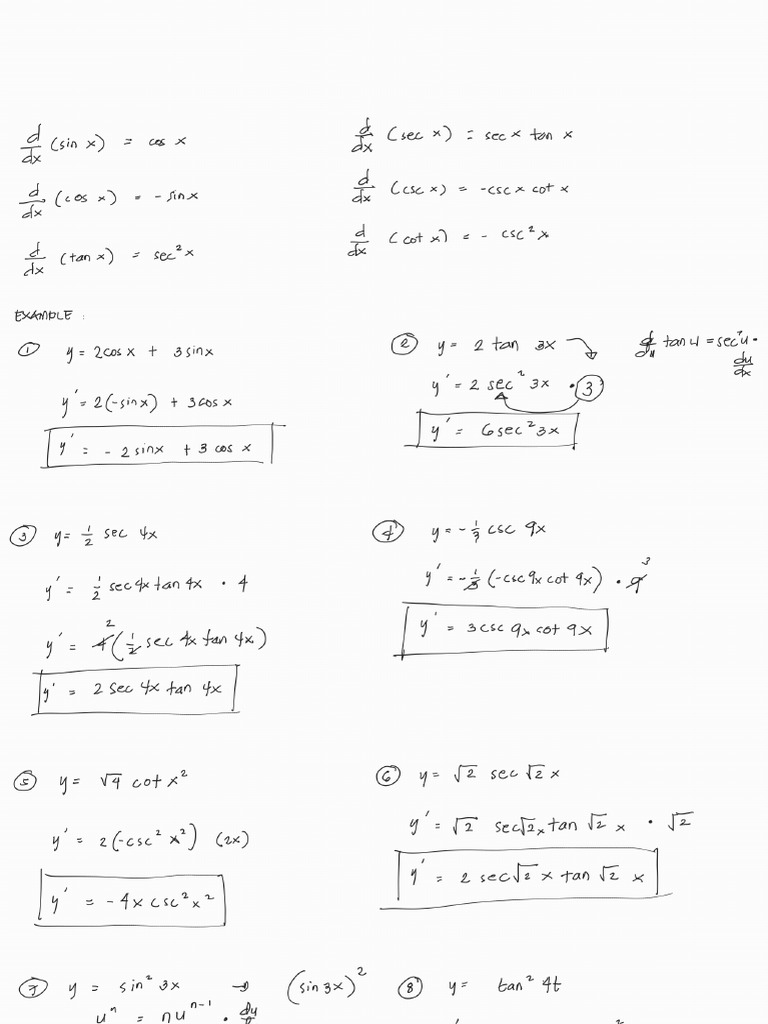 d/dx (sin x) = cos x
d/dx (cos x) = - sin x
d/dx (tan x) = sec²x
d/dx (sec x) = sec x tan x
d/dx (csc x) = -csc x cot x
d/dx (cot x) = - csc²x
EXAMPLE :
① y = 2cos x + 3 sin x
y' = 2(-sin x) + 3cos x
y' = - 2 sinx + 3 cos x
② y = 2 tan 3x
y' = 2 sec² 3x • 3
y' = 6sec² 3x
d/du tan u = sec²u • du/dx
③ y = 1/2 sec 4x
y' = 1/2 sec 4x tan 4x • 4
2
y' = 4(1/2 sec 4x tan 4x)
y' = 2 sec 4x tan 4x
④ y = - 1/3 csc 9x
y' = - 1/3 (-csc 9x cot 9x) • 9 3
y' = 3 csc 9x cot 9x
⑤ y = √4 cot x²
y' = 2(-csc² x²) (2x)
y' = - 4x csc² x²
⑥ y = √2 sec √2 x
y' = √2 sec √2 x tan √2 x • √2
y' = 2 sec √2 x tan √2 x
⑦ y = sin² 3x → (sin 3x)²
uⁿ = nuⁿ⁻¹ •
⑧ y = tan² 4t